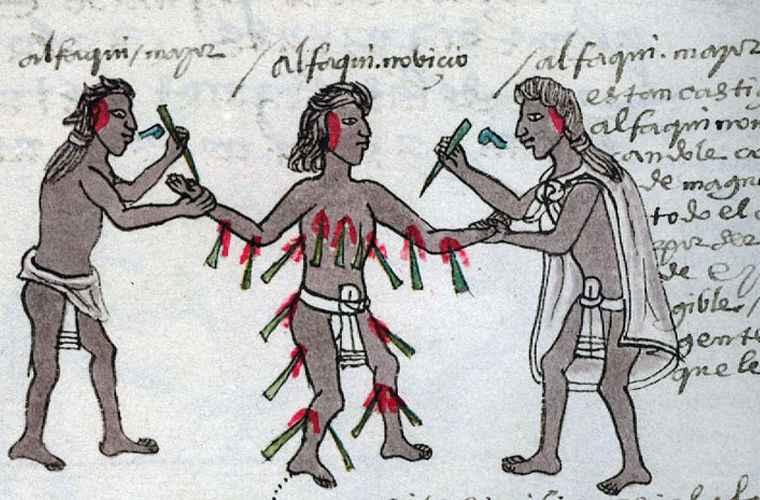 alfaqui / mayor
alfaqui . novicio
alfaqui . mayor
estan castig
alfaqui nov
candole co
de mague
todo el c
por ser
de
gible /
gente
que le